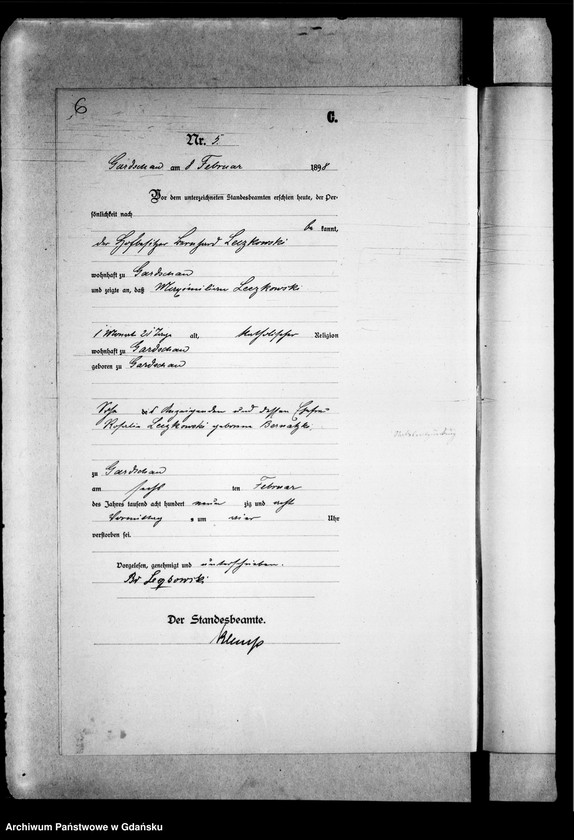 6
C.
Nr. 5.
Gardschau am 8 Februar 1898
Vor dem unterzeichneten Standesbeamten erschien heute, der Per-
sönlichkeit nach
be kannt,
der Hofbesitzer Bernhard Leczkowski
wohnhaft zu Gardschau
und zeigte an, daß Maximilian Leczkowski
1 Monat 21 Tage alt, katholischer Religion
wohnhaft zu Gardschau
geboren zu Gardschau
Sohn des Anzeigenden und dessen Ehefrau
Rosalie Leczkowski geborene
zu Gardschau
am sechsten Februar
des Jahres tausend acht hundert neun zig und acht
Vormittag s um vier Uhr
verstorben sei.
Vorgelesen, genehmigt und unterschrieben.
Der Standesbeamte.
Archiwum Państwowe w Gdańsku